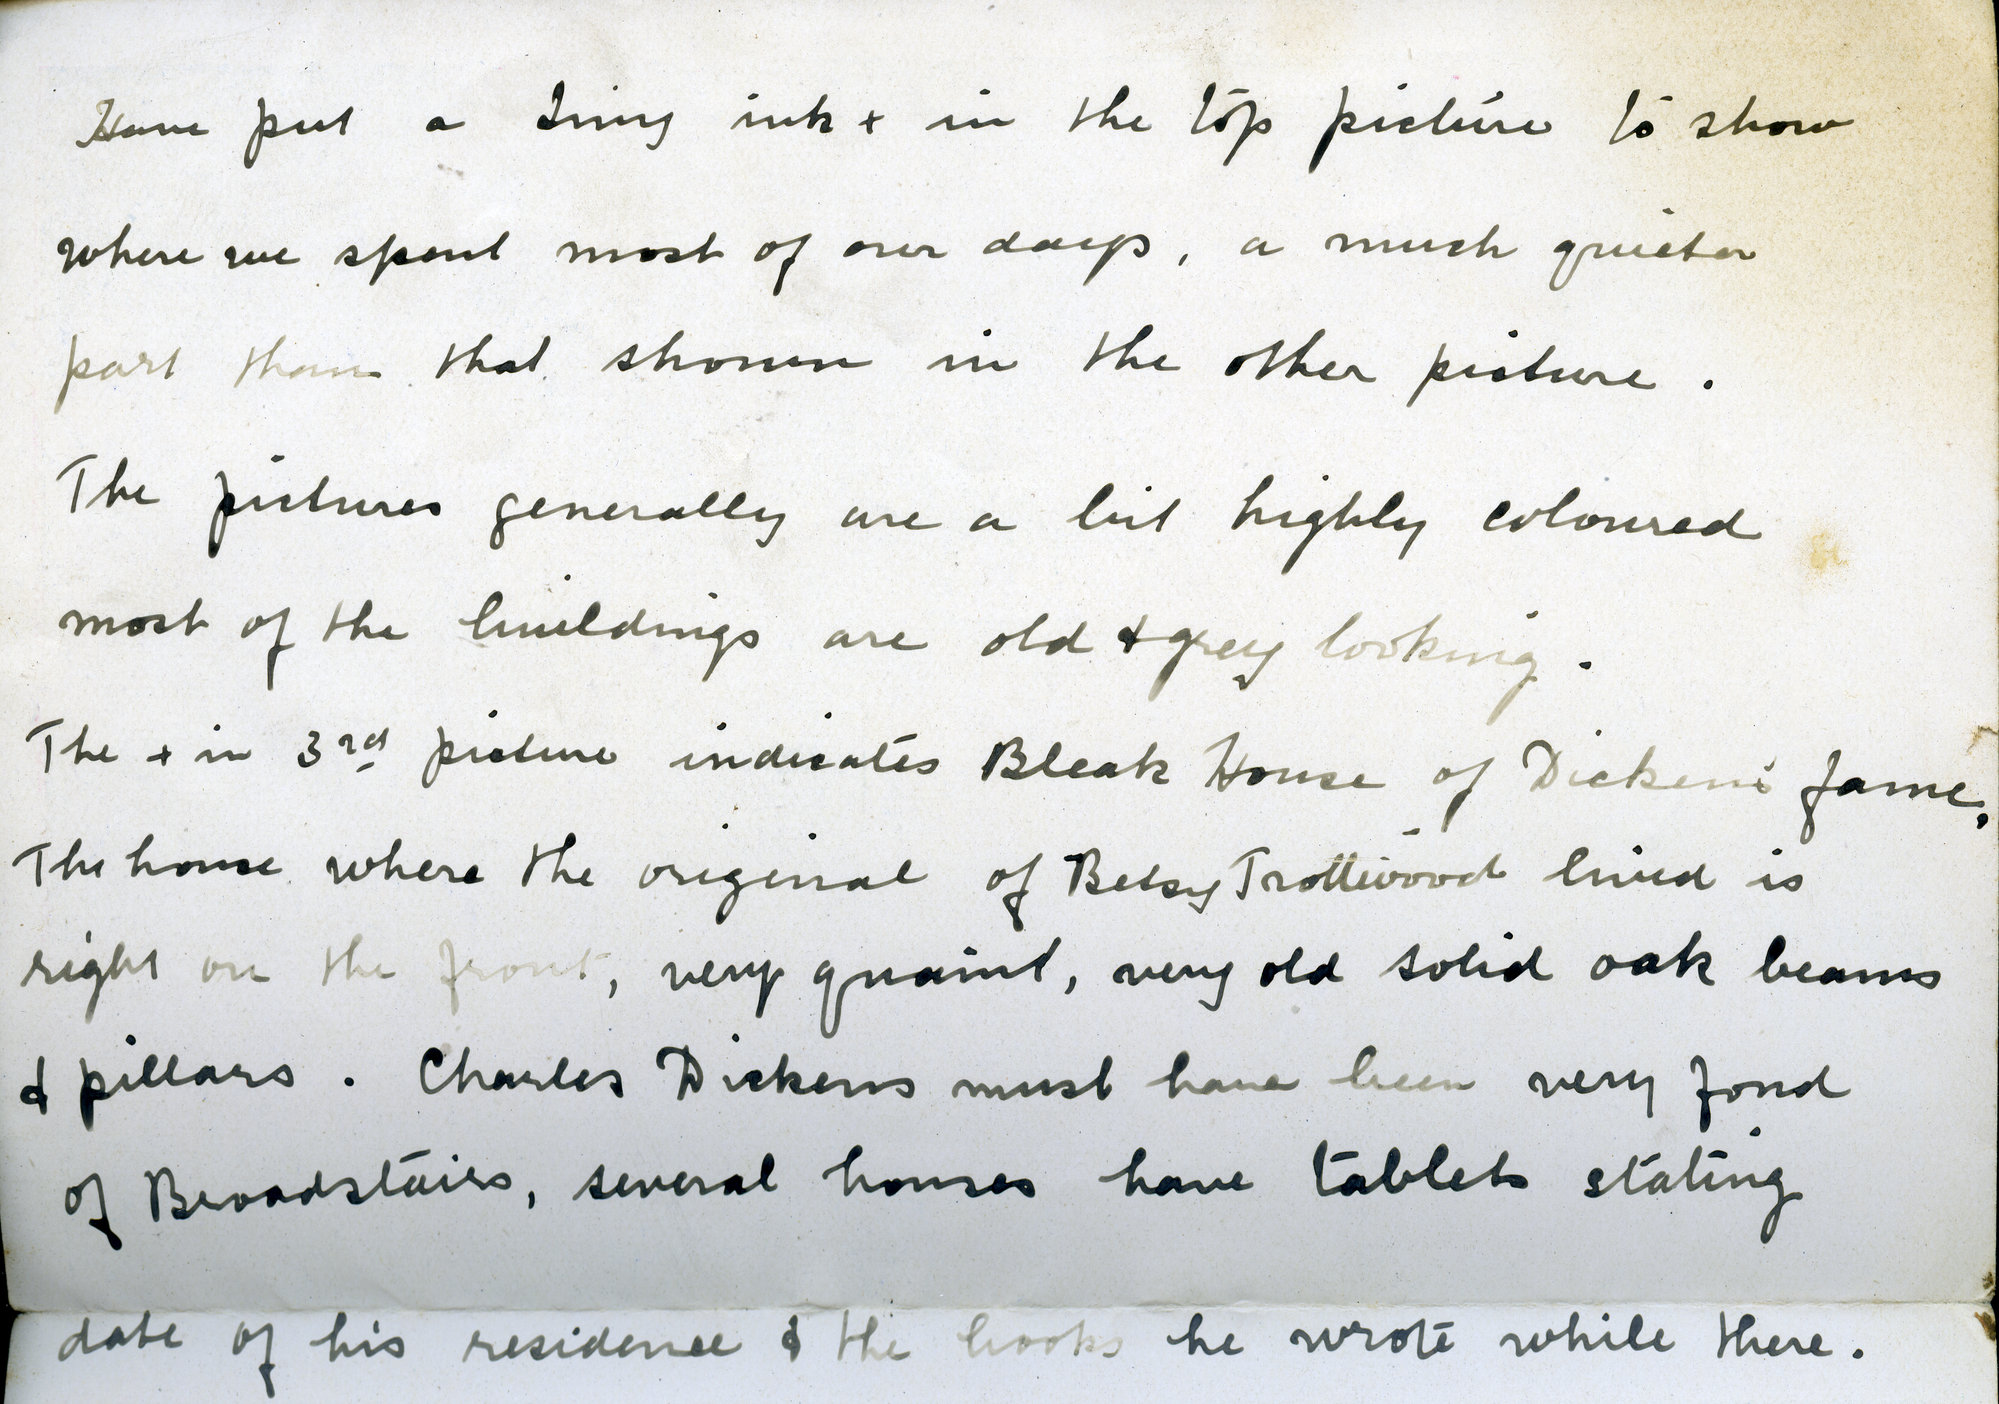 Have put a tiny ink + in the top picture to show
where we spent most of our days, a much quieter
part than that shown in the other picture.
The pictures generally are a bit highly coloured
most of the buildings are old & grey looking.
The + in 3rd picture indicates Bleak House of Dickens fame,
The house where the original of Betsy Trottwood lived is
right on the front, very quaint, very old solid oak beams
& pillars. Charles Dickens must have been very fond
of Broadstairs, several houses have tablets stating
date of his residence & the books he wrote while there.